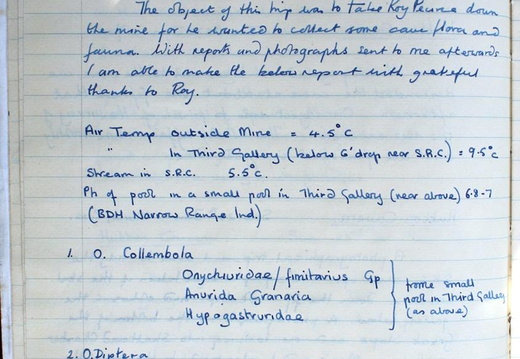 The object of this trip was to take Roy Pearce down
the mine for he wanted to collect some cave flora and
fauna. With reports and photographs sent to me afterwards
I am able to make the below report with grateful
thanks to Roy.
Air Temp outside Mine = 4.5°c
" In Third Gallery (below 6' drop near S.R.C.) = 9.5°c
Stream in S.R.C. 5.5°c.
Ph of pool in a small pool in Third Gallery (near above) 6.8-7
(BDH Narrow Range Ind.)
1. O. Collembola
Onychiuridae/fimitarius Gp
Anurida Granaria
Hypogastruridae
from small
pool in Third Gallery
(as above)
2. O. Diptera